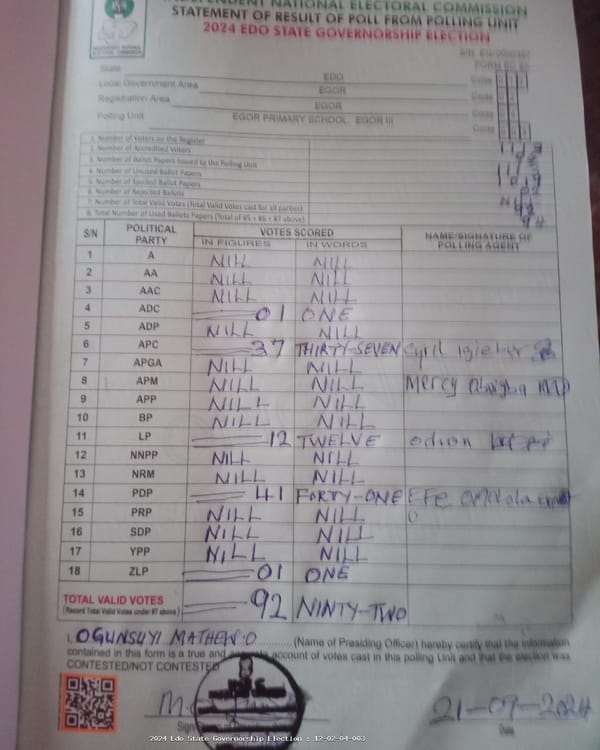 INDEPENDENT NATIONAL ELECTORAL COMMISSION
STATEMENT OF RESULT OF POLL FROM POLLING UNIT
2024 EDO STATE GOVERNORSHIP ELECTION
State EDO Code
Local Government Area EGOR Code
Registration Area EGOR Code
Polling Unit EGOR PRIMARY SCHOOL, EGOR III Code
1. Number of Voters on the Register
2. Number of Accredited Voters
3. Number of Ballot Papers Issued to the Polling Unit
4. Number of Unused Ballot Papers
5. Number of Spoiled Ballot Papers
6. Number of Rejected Ballots
7. Number of Total Valid Votes (Total Valid Votes cast for all parties)
8. Total Number of Used Ballots Papers (Total of #5 + #6 + #7 above)
S/N POLITICAL PARTY VOTES SCORED NAME/SIGNATURE OF POLLING AGENT
IN FIGURES IN WORDS
1 A NILL NILL
2 AA NILL NILL
3 AAC NILL NILL
4 ADC 01 ONE
5 ADP NILL NILL
6 APC 37 THIRTY-SEVEN Cyril
7 APGA NILL NILL
8 APM NILL NILL Mercy
9 APP NILL NILL
10 BP NILL NILL
11 LP 12 TWELVE
12 NNPP NILL NILL
13 NRM NILL NILL
14 PDP 41 FORTY-ONE EFE
15 PRP NILL NILL
16 SDP NILL NILL
17 YPP NILL NILL
18 ZLP 01 ONE
TOTAL VALID VOTES 92 NINTY-TWO
(Record Total Valid Votes under #7 above)
I, OGUNSUYI MATHEW O (Name of Presiding Officer) hereby certify that the information
contained in this form is a true and account of votes cast in this polling Unit and that the election was
CONTESTED/NOT CONTESTED
21-09-2024
Date
2024 Edo State Governorship Election : 12-02-04-003